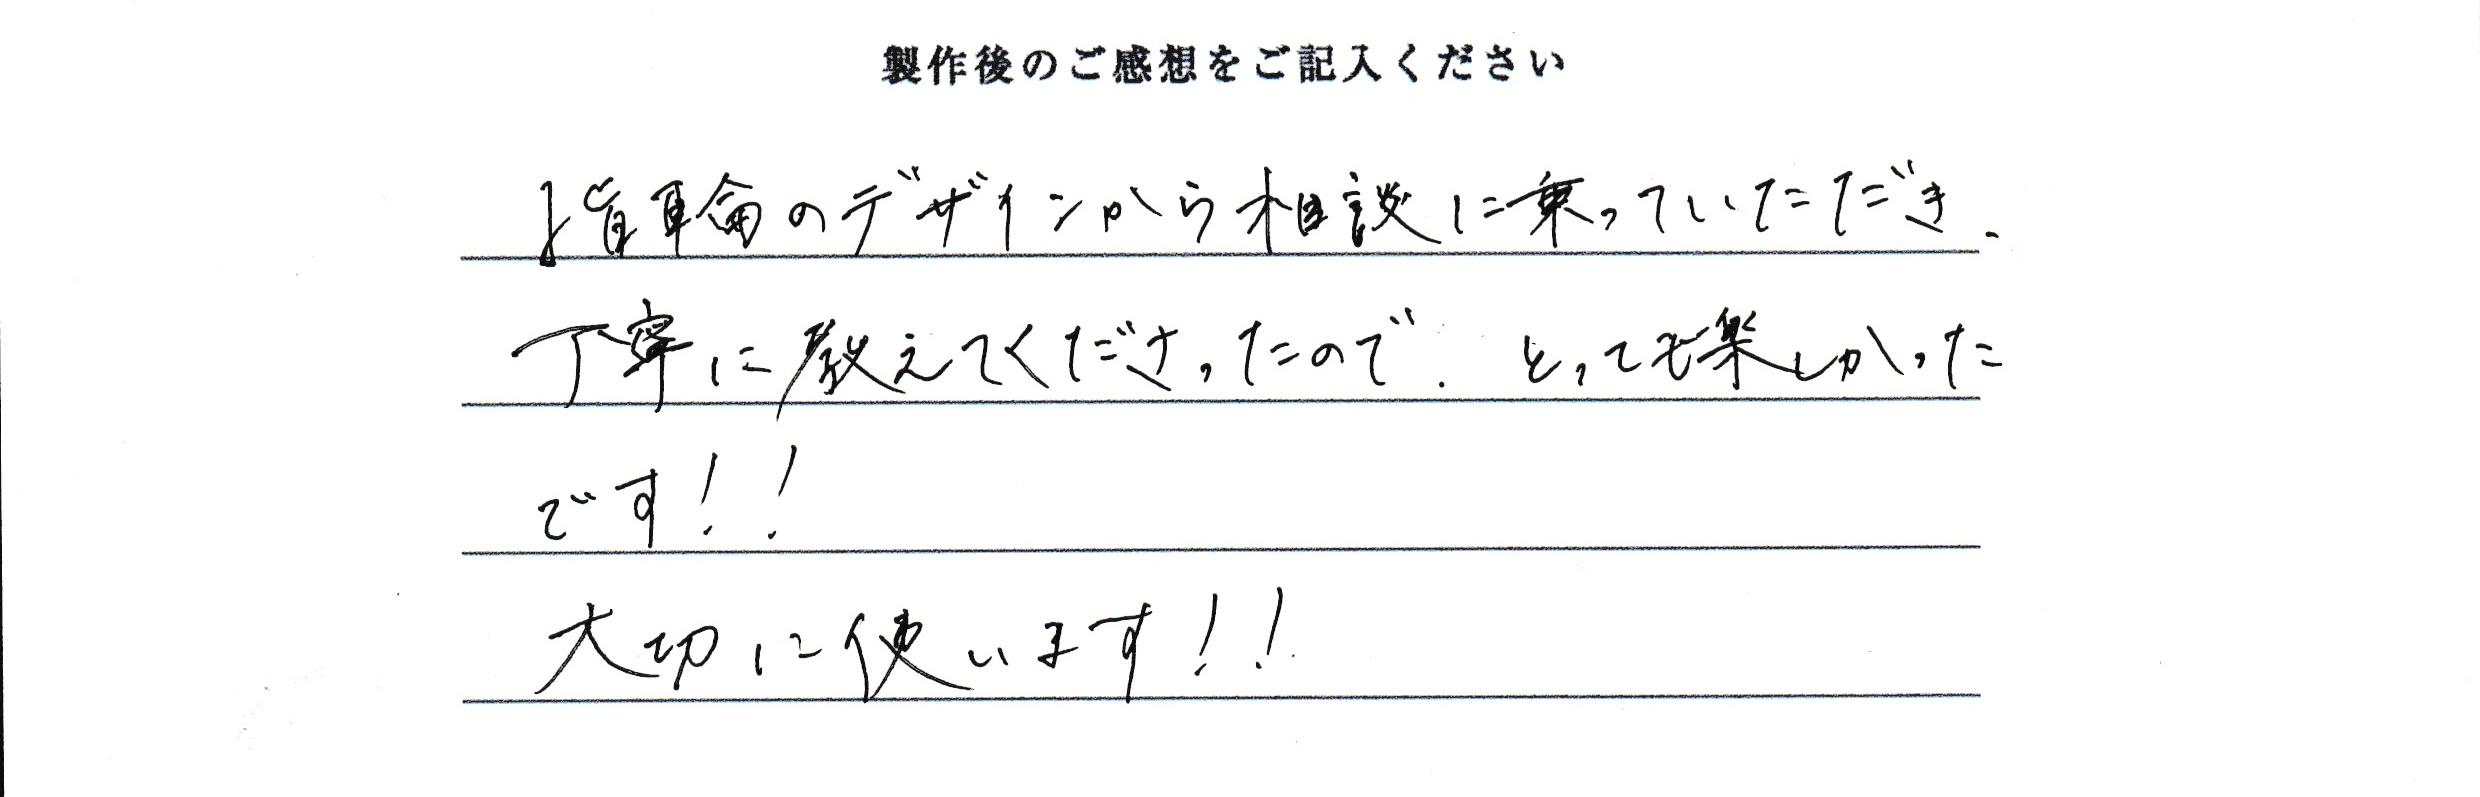 製作後のご感想をご記入ください
指輪のデザインから相談に乗っていただき、
丁寧に教えてくださったので、とっても楽しかった
です!!
大切に使います!!